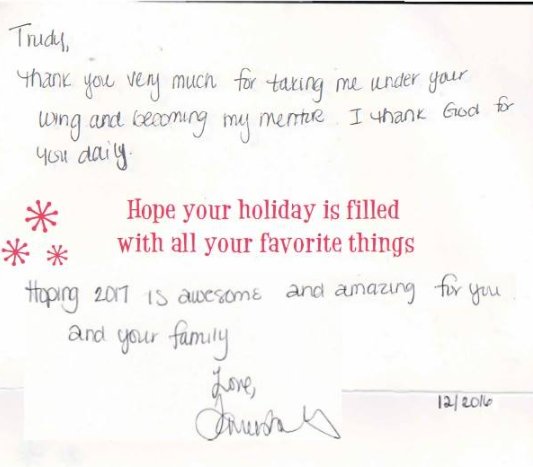 Trudy,
thank you very much for taking me under your
wing and becoming my mentor. I thank God for
you daily.
Hope your holiday is filled
with all your favorite things
Hoping 2017 is awesome and amazing for you
and your family
Love,
12/2016